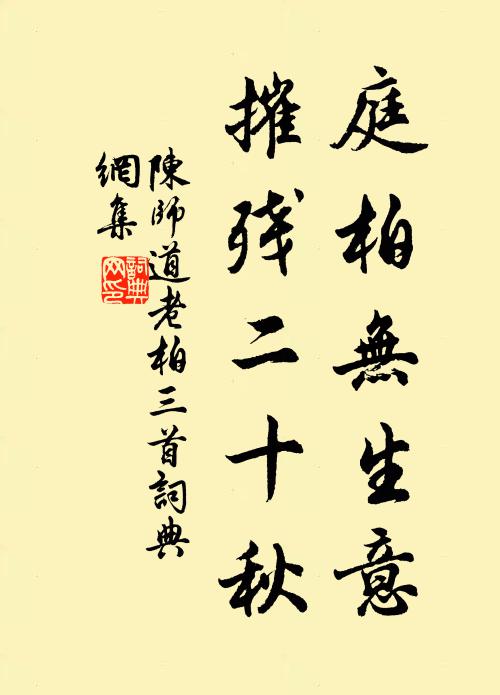 庭柏無生意
摧残二十秋
陳師道老柏三首詞典
網集
詞典網印